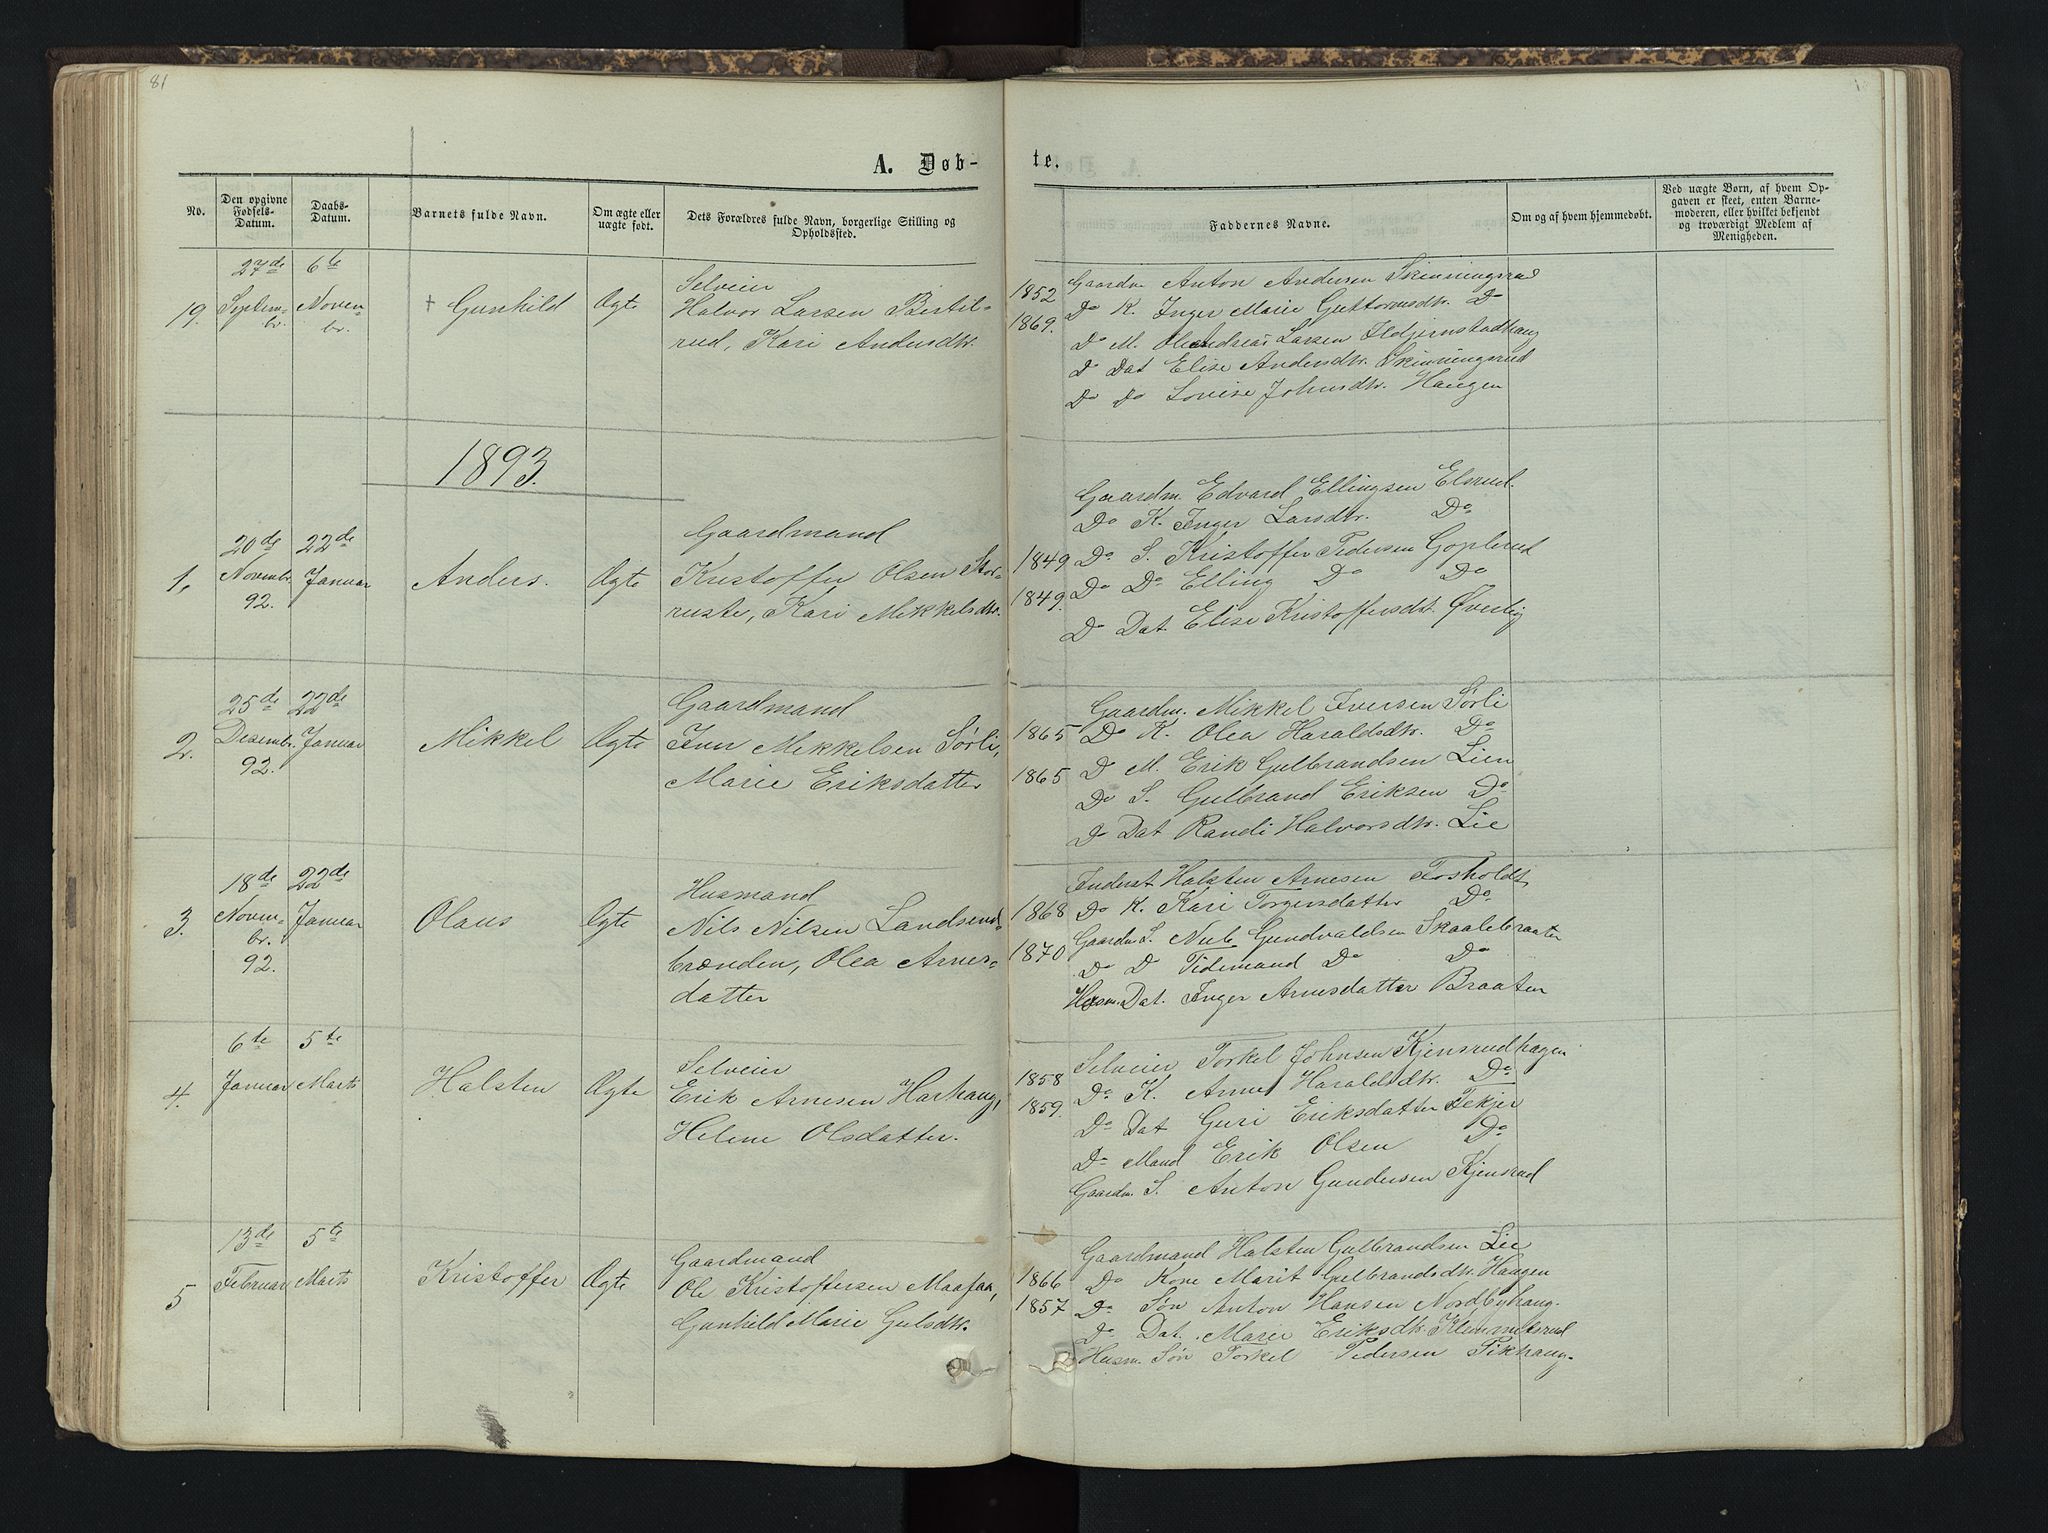 81
A. Døb-
te.
No.
Den opgivne Fødsels-Datum.
Daabs-Datum.
Barnets fulde Navn.
Om ægte eller uægte født.
Dets Forældres fulde Navn, borgerlige Stilling og Opholdssted.
Faddernes Navne.
Om og af hvem hjemmedøbt.
Ved uægte Børn, af hvem Opgaven er skeet, enten Barnemoderen, eller hvilket bekjendt og troværdigt Medlem af Menigheden.
19.
27de
Septem-
br.
6te
Novem-
br.
+ Gunhild
Ægte
Selveier
Halvor Larsen Bertil-
rud, Kari Andersdtr.
1852
1869.
Gaardm Anton Andersen Skinningsrud
Do K. Inger Marie Guttormsdtr. Do
Do M. Ole Andreas Larsen Hdjernstadhaug
Do Dat Elise Andersdtr. Skinningsrud
Do Do Lovise Johnsdtr. Haugen
1893.
1.
20de
Novembr.
92.
22de
Januar
Anders.
Ægte
Gaardmand
Kristoffer Olsen Stor-
ruste, Kari Mikkelsdtr.
1849
1849.
Gaardm. Edvard Ellingsen Elsrud.
Do K. Inger Larsdtr. Do
Do S. Kristoffer Pedersen Goplerud
Do Do Elling Do Do
Do Dat. Elise Kristoffersdt. Øverby
2.
25de
Desembr.
92.
22de
Januar
Mikkel
Ægte
Gaardmand
Iver Mikkelsen Sørli,
Marie Eriksdatter
1865
1865
Gaardm. Mikkel Iversen Sørli
Do K. Olea Haraldsdtr. Do
D M. Erik Gulbrandsen Lien
Do S. Gulbrand Eriksen Do
Do Dat Randi Halvorsdtr. Lie
3.
18de
Novem-
br.
92.
22de
Januar
Olaus
Ægte
Husmand
Nils Nilsen Landsend-
brænden, Olea Arnes-
datter
1868
1870
Inderst Halsten Arnesen Fosholdt
Do K. Kari Torgersdatter Do
Gaardm S. Nub Gundvaldsen Skaalebraaten
Do D Tidemand Do Do
Husm. Dat. Inger Arnesdatter Braaten
4.
6te
Januar
5te
Marts
Halsten
Ægte
Selveier
Erik Arnesen Harhaug,
Helene Olsdatter.
1858
1859.
Selveier Torkel Johnsen Kjensrudhagen
Do K. Anne Haraldsdtr. Do
Do Dat Guri Eriksdatter Tekjer
Do Mand Erik Olsen Do
Gaardm. S. Anton Gundersen Kjensrud
5
13de
Februar
5te
Marts
Kristoffer
Ægte
Gaardmand
Ole Kristoffersen Maafaa,
Gunhild Marie Gulsdtr.
1866
1857
Gaardmand Halsten Gulbrandsen Lie
Do Kone Marit Gulbrandsdtr. Haugen
Do Søn Anton Hansen Nordbyhaug.
Do Dat. Marie Eriksdtr. Klemmetsrud
Husm. Søn Torkel Pedersen Tikhaug.